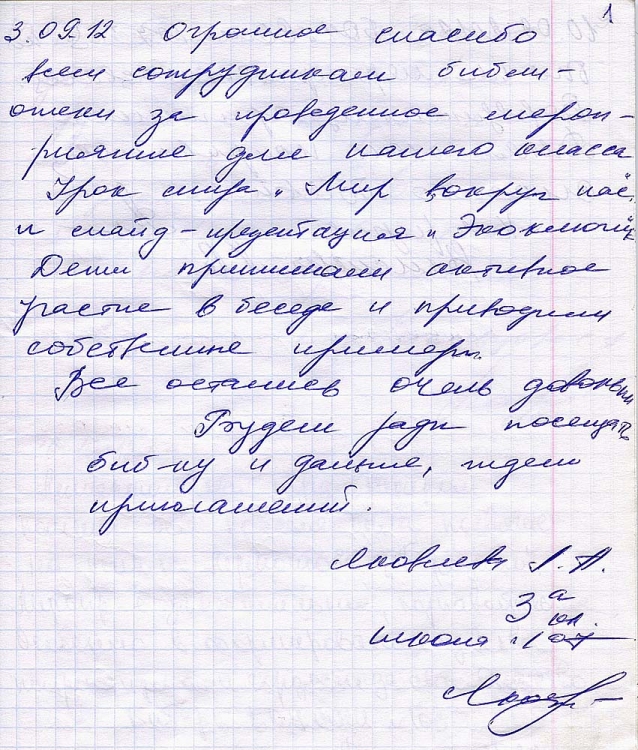 1
3.09.12 Огромное спасибо
всем сотрудникам библи-
отеки за проведенное мероп-
риятие для нашего класса
Урок мира "Мир вокруг нас"
и слайд-презентация "
Дети принимали активное
участие в беседе и приводили
собственные примеры.
Все остались очень довольны
Будем рады посещать
биб-ку и дальше, ждем
приглашений.
Яковлева Л.А.
3 а
кл.
школа